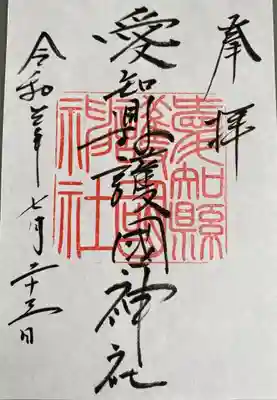 奉拝
愛知縣護國神社
令和 年七月二十三日
愛知縣
護國
神社